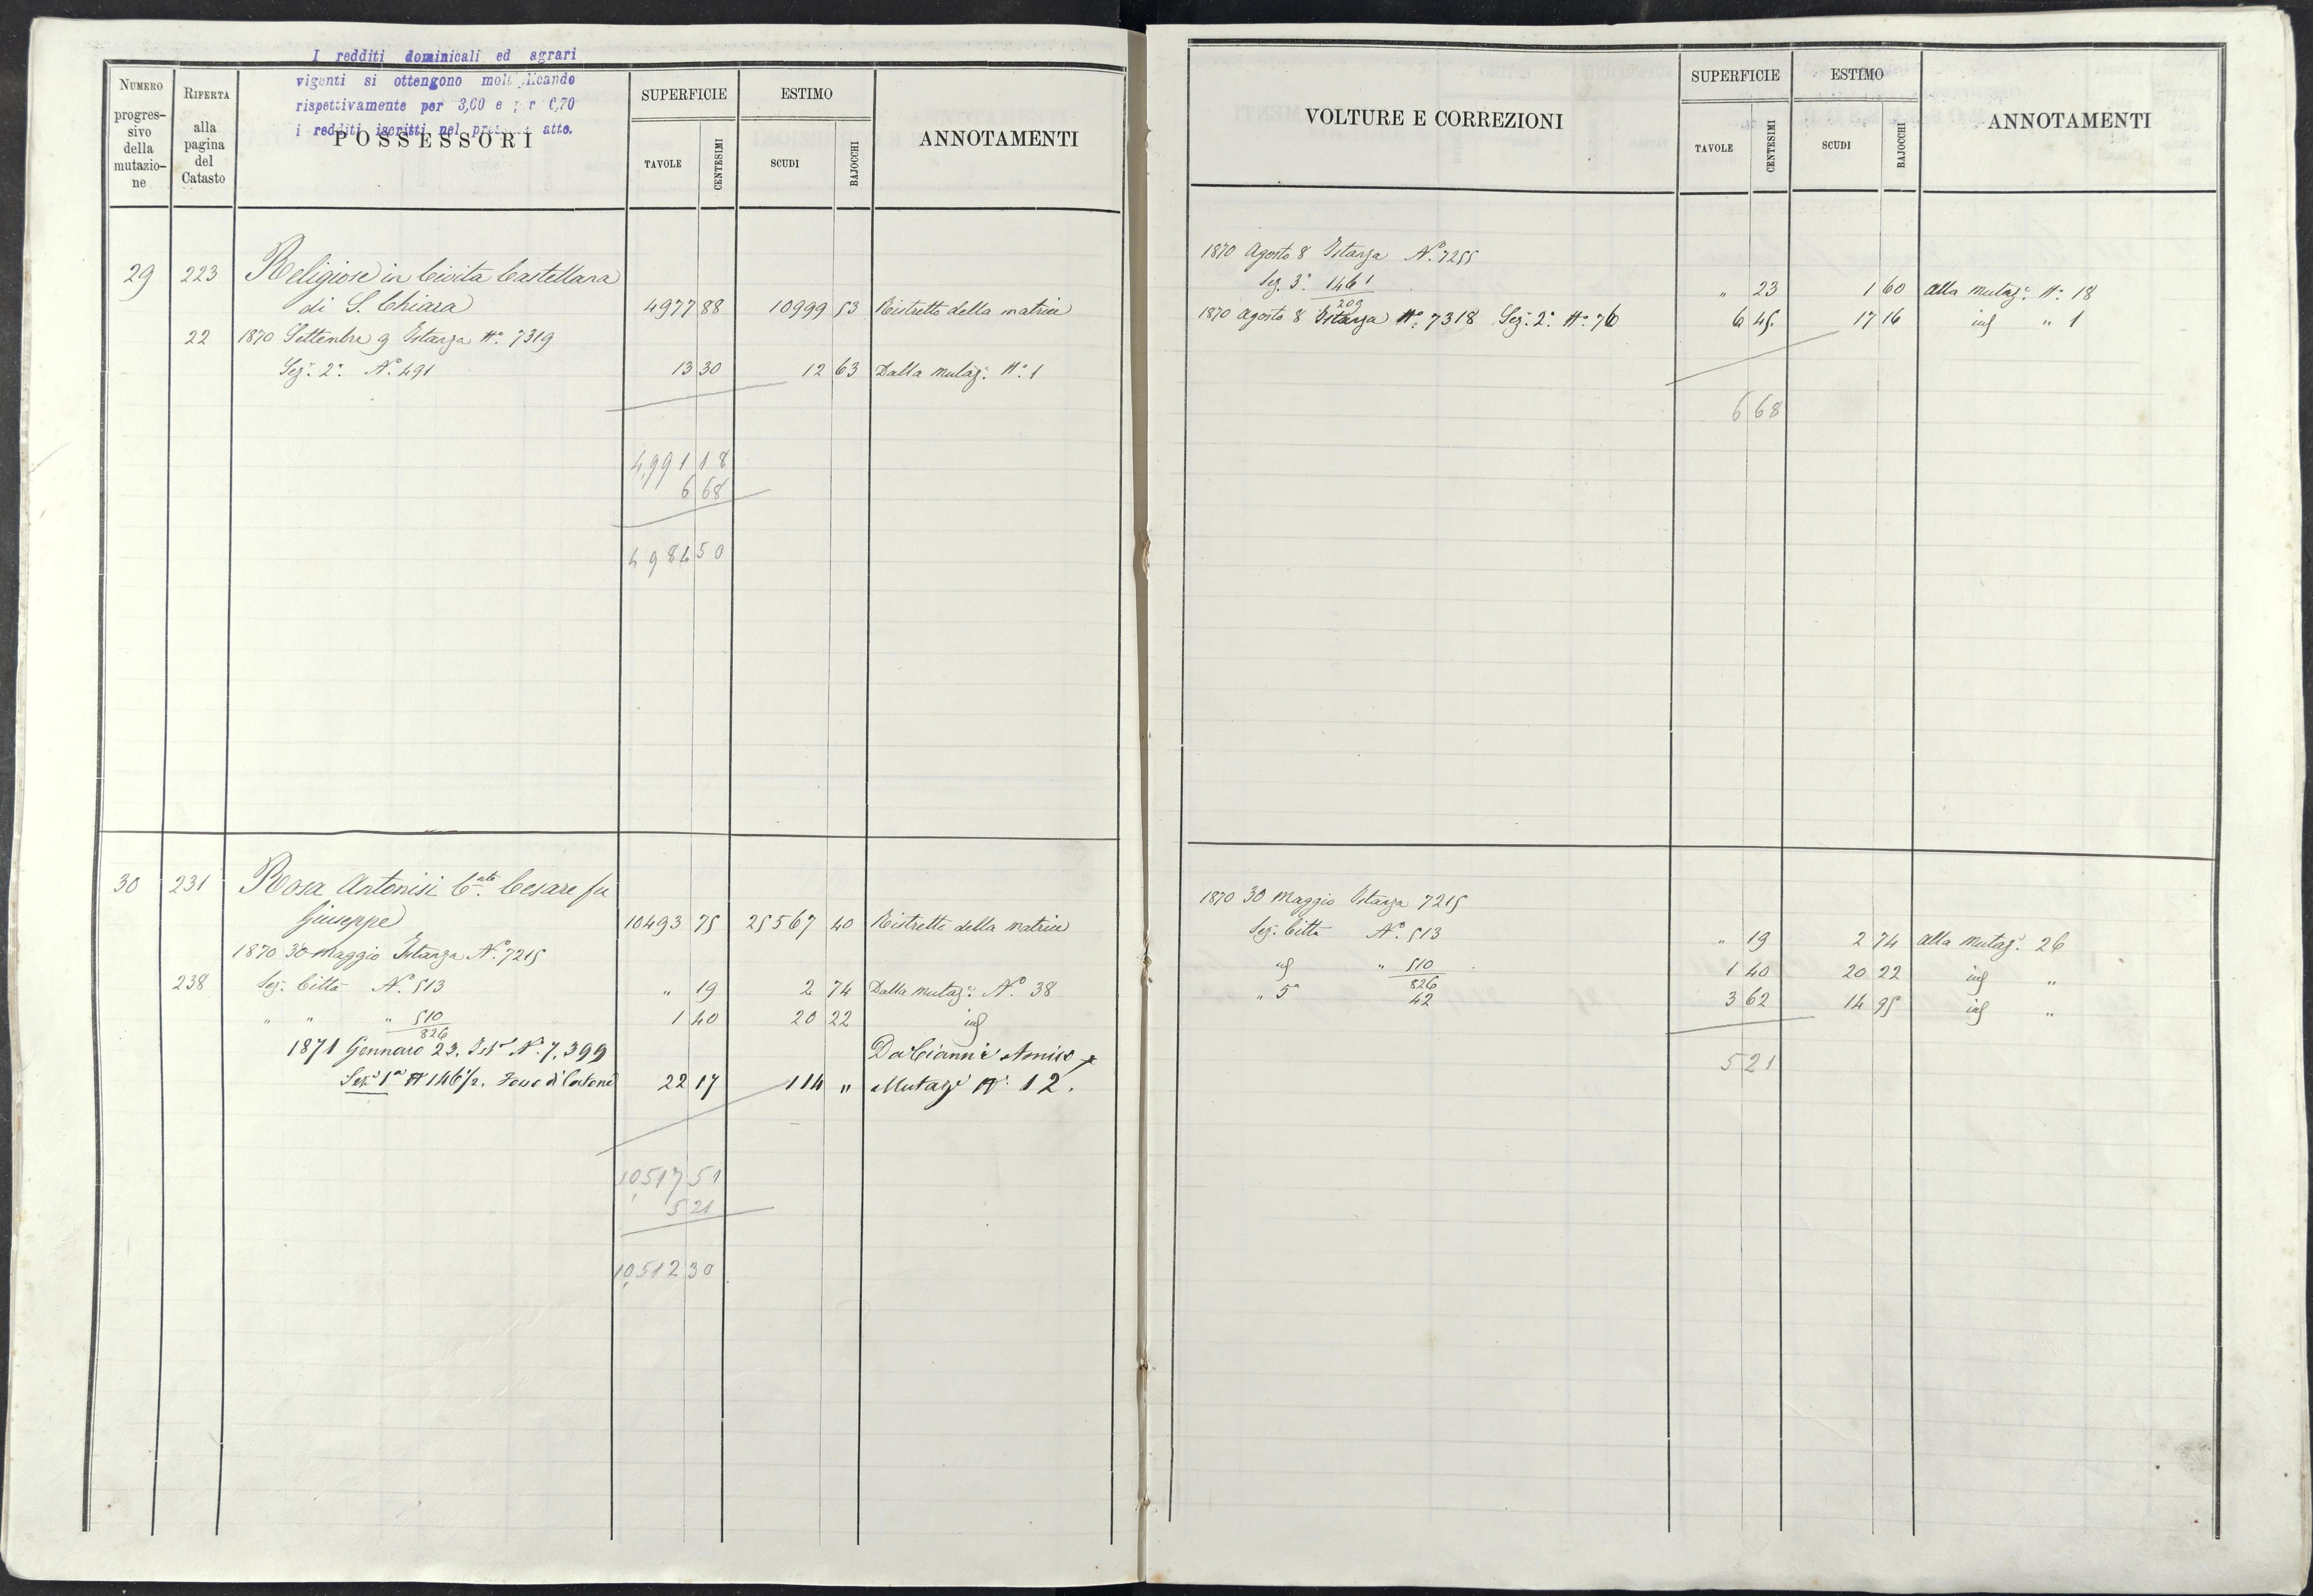 I redditi dominicali ed agrari
vigenti si ottengono moltiplicando
rispettivamente per 3,00 e per 6,70
i redditi iscritti nel presente atto.
NUMERO progres- sivo della mutazio- ne
RIFERTA alla pagina del Catasto
POSSESSORI
SUPERFICIE
TAVOLE CENTESIMI
ESTIMO
SCUDI BAJOCCHI
ANNOTAMENTI
29 223 Religiose in Civita Castellana
di S. Chiara 4977 88 10999 53 Ristretto della matrice
22 1870 Settembre 9 Istanza N.° 7319
Sez. 2.ª N.° 491 13 30 12 63 Dalla mutaz. N.° 1
4,991 18
6 68
4984 50
30 231 Rosa Antonisi C.ate Cesare fu
Giuseppe 10493 75 25567 40 Ristretto della matrice
1870 30 Maggio Istanza N.° 7215
238 Sez. Città N.° 513 " 19 2 74 Dalla mutaz. N.° 38
" " " 510/826 1 40 20 22 id
1871 Gennaro 23. Ist. N. 7,399 Da Cianni
Sez. 1ª N 146 1/2. 22 17 114 " Mutaz. N. 12.
10,517 51
5 21
10,512 30
VOLTURE E CORREZIONI
SUPERFICIE
TAVOLE CENTESIMI
ESTIMO
SCUDI BAJOCCHI
ANNOTAMENTI
1870 Agosto 8 Istanza N.° 7255
Sez. 3.ª 1461/209 " 23 1 60 alla mutaz. N.° 18
1870 Agosto 8 Istanza N.° 7318 Sez. 2.ª N.° 76 6 45 17 16 id " 1
6 68
1870 30 Maggio Istanza 7215
Sez. Città N.° 513 " 19 2 74 alla mutaz. 26
id " 510/826 1 40 20 22 id "
" 5ª 42 3 62 14 95 id "
5 21